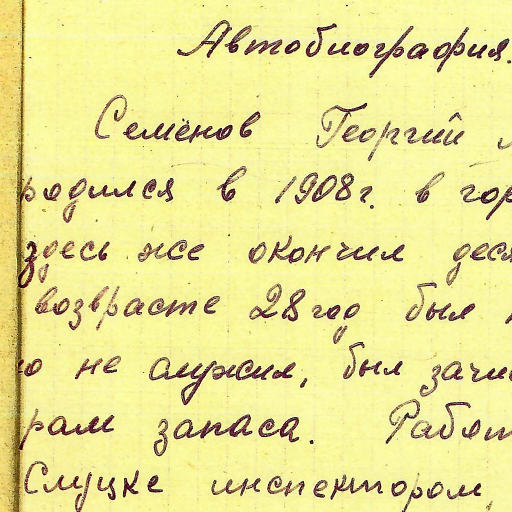 Автобиография.
Семёнов Георгий
родился в 1908 г. в гор
здесь же окончил деся
возврасте 28 год был
не служил, был зачис
рам запаса. Работ
Слуцке инспектором